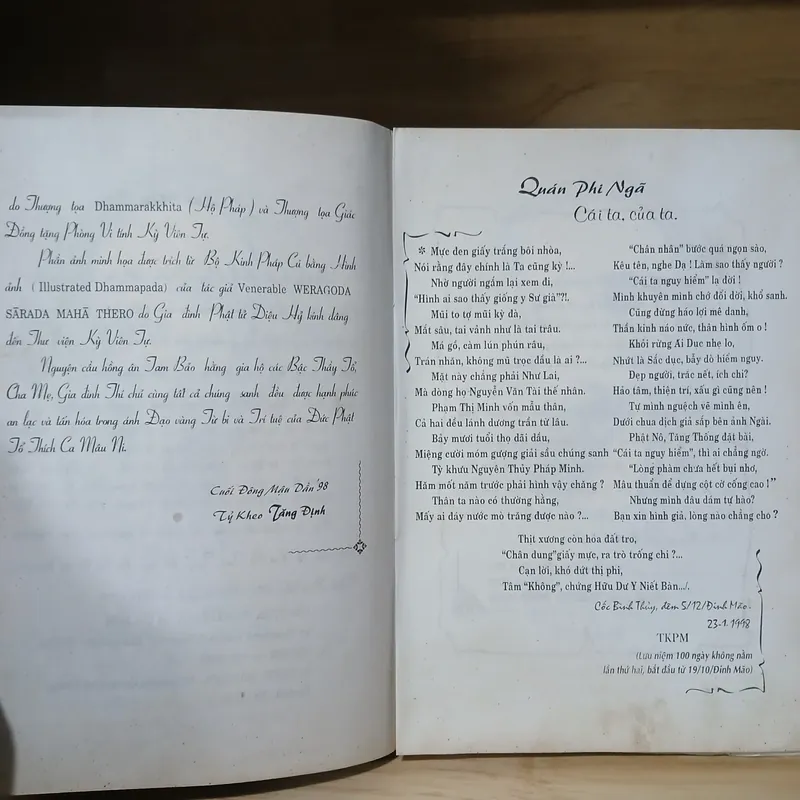 do Thượng tọa Dhammarakkhita ( Hộ Pháp ) và Thượng tọa Giác
Đồng tặng Phòng Vi tính Kỳ Viên Tự.
Phần ảnh minh họa được trích từ Bộ Kinh Pháp Cú bằng Hình
ảnh ( Illustrated Dhammapada) của tác giả Venerable WERAGODA
SĀRADA MAHĀ THERO do Gia đình Phật tử Diệu Hỷ kính dâng
đến Thư viện Kỳ Viên Tự.
Nguyện cầu hồng ân Tam Bảo hằng gia hộ các Bậc Thầy Tổ,
Cha Mẹ, Gia đình Thí chủ cùng tất cả chúng sanh đều được hạnh phúc
an lạc và tấn hóa trong ánh Đạo vàng Từ bi và Trí tuệ của Đức Phật
Tổ Thích Ca Mâu Ni.
Cuối Đông Mậu Dần '98
Tỳ Kheo Tăng Định
Quán Phi Ngã
Cái ta, của ta.
* Mực đen giấy trắng bôi nhòa,
Nói rằng đây chính là Ta cũng kỳ !...
Nhờ người ngắm lại xem đi,
“Hình ai sao thấy giống y Sư già”?!.
Mũi to tợ mũi kỳ đà,
Mắt sâu, tai vảnh như là tai trâu.
Má gồ, cằm lún phún râu,
Trán nhăn, không mũ trọc đầu là ai ?...
Mặt này chẳng phải Như Lai,
Mà dòng họ Nguyễn Văn Tài thế nhân.
Phạm Thị Minh vốn mẫu thân,
Cả hai đều lánh dương trần từ lâu.
Bảy mươi tuổi thọ dãi dầu,
Miệng cười móm gượng giải sầu chúng sanh
Tỳ khưu Nguyên Thủy Pháp Minh.
Hăm mốt năm trước phải hình vậy chăng ?
Thân ta nào có thường hằng,
Mấy ai đáy nước mò trăng được nào ?...
“Chân nhân” bước quá ngọn sào,
Kêu tên, nghe Dạ ! Làm sao thấy người ?
“Cái ta nguy hiểm” lạ đời !
Mình khuyên mình chớ đổi dời, khổ sanh.
Cũng đừng háo lợi mê danh,
Thần kinh náo nức, thân hình ốm o !
Khôi rừng Ái Dục nhẹ lo,
Nhứt là Sắc dục, bẫy dò hiểm nguy.
Đẹp người, trác nết, ích chi?
Hảo tâm, thiện trí, xấu gì cũng nên !
Tự mình nguệch vẽ mình ên,
Dưới chua dịch giả sắp bên ảnh Ngài.
Phật Nô, Tăng Thống đặt bài,
“Cái ta nguy hiểm”, thì ai chẳng ngờ.
“Lòng phàm chưa hết bụi nhơ,
Mâu thuẩn để dựng cột cờ cống cao !”
Nhưng mình đâu dám tự hào?
Bạn xin hình giả, lòng nào chẳng cho ?
Thịt xương còn hóa đất tro,
“Chân dung”giấy mực, ra trò trống chi ?...
Cạn lời, khó dứt thị phi,
Tâm “Không”, chứng Hữu Dư Y Niết Bàn.../.
Cốc Bình Thủy, đêm 5/12/Đinh Mão.
23-1. 1998
TKPM
(Lưu niệm 100 ngày không nằm
lần thứ hai, bắt đầu từ 19/10/Đinh Mão)